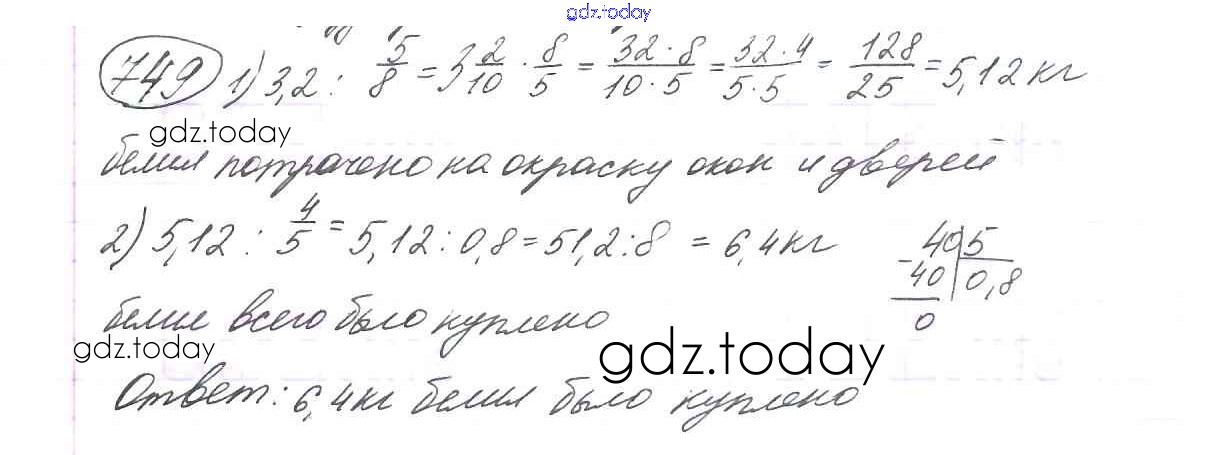 gdz.today
749 1) 3,2 : 5/8 = 3 2/10 · 8/5 = 32·8/10·5 = 32·4/5·5 = 128/25 = 5,12 кг
gdz.today
белил потрачено на окраску окон и дверей
2) 5,12 : 4/5 = 5,12 : 0,8 = 51,2 : 8 = 6,4 кг
40 5
- 40 0,8
0
белил всего было куплено
gdz.today
gdz.today
Ответ: 6,4 кг белил было куплено